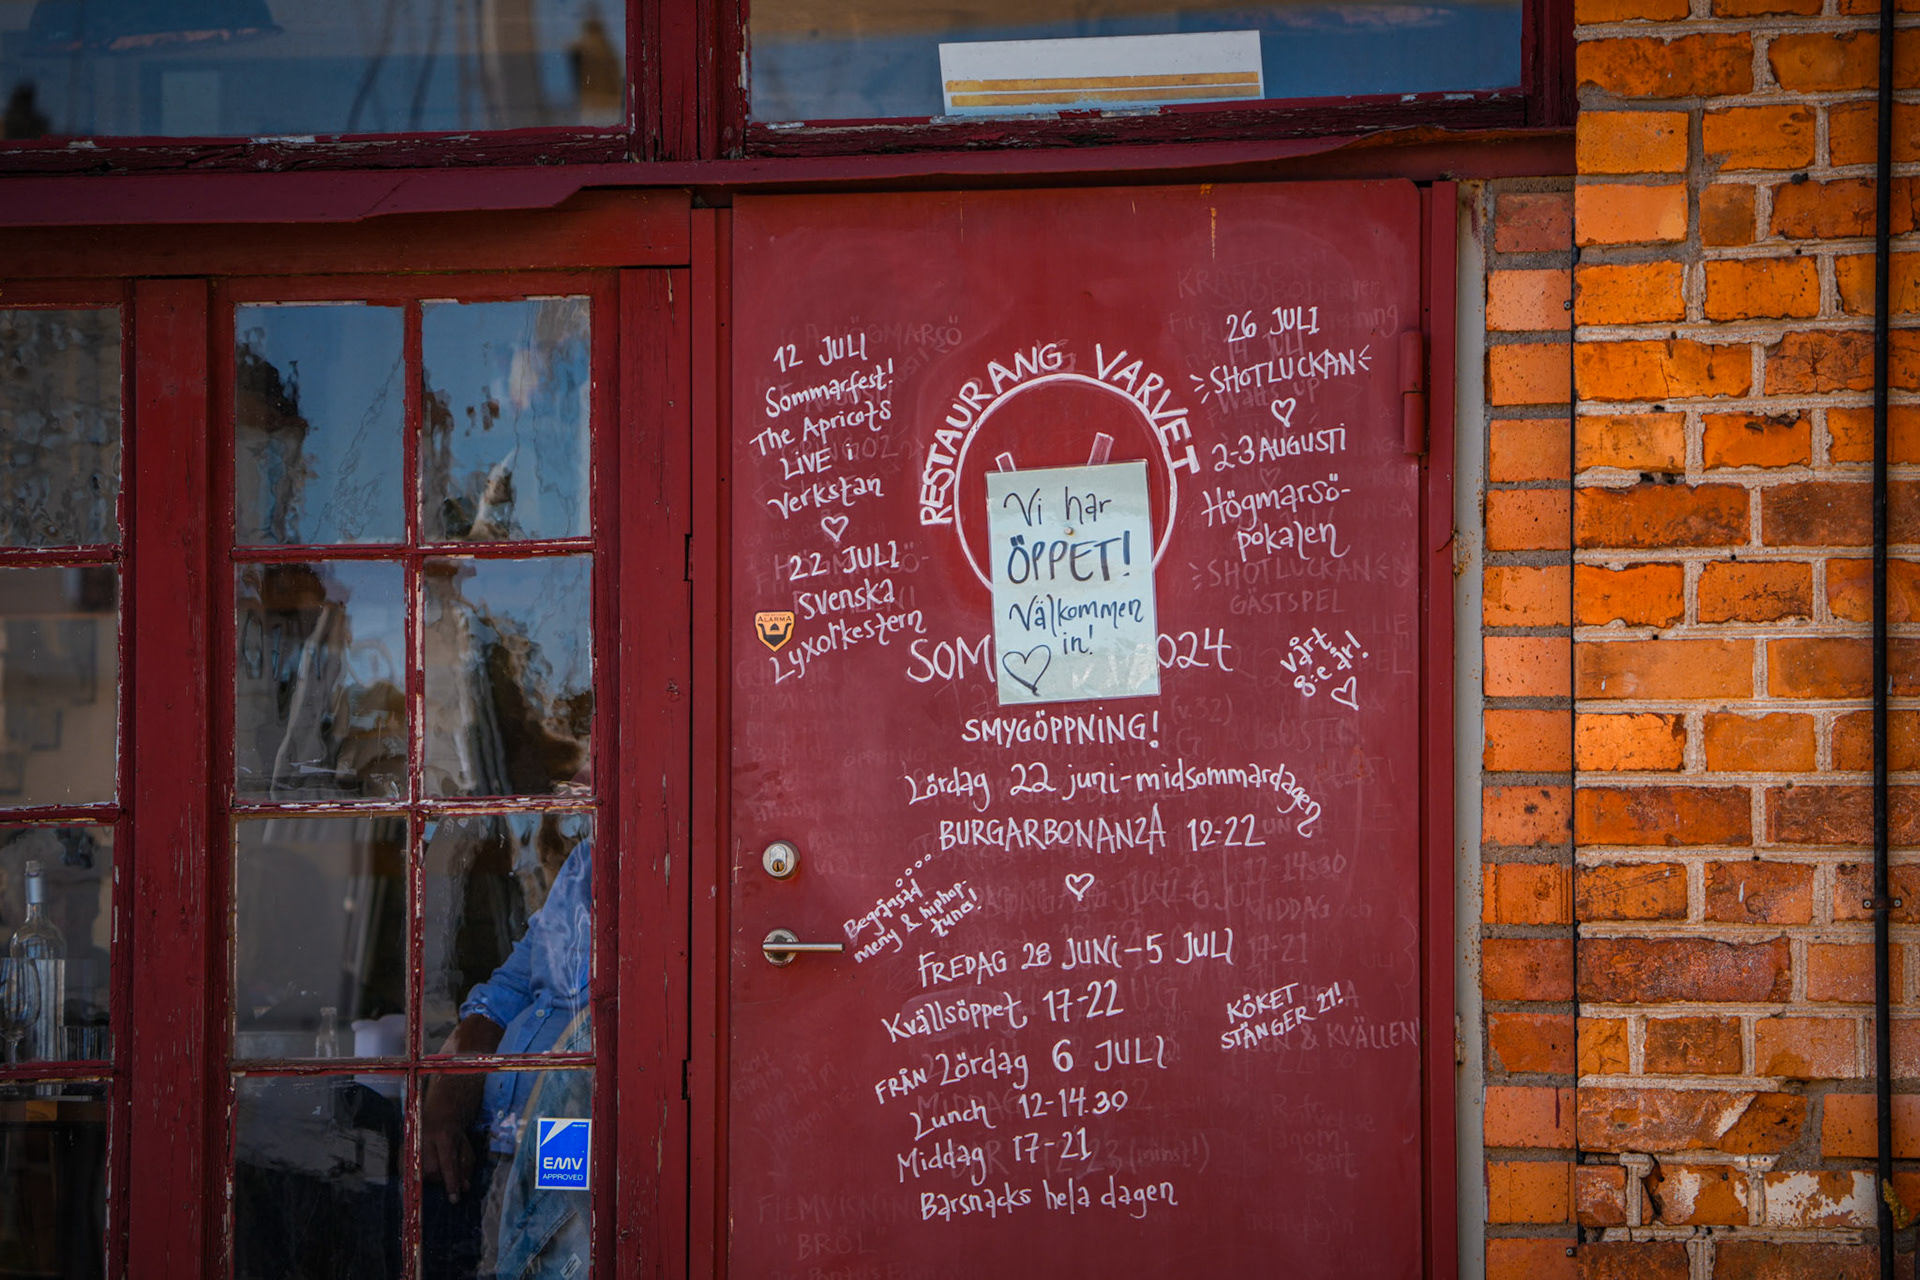 12 JULI
Sommarfest!
The Apricots
LIVE i
Verkstan
22 JULI
Svenska
Lyxorkestern
ALARMA
RESTAURANG VARVET
Vi har
ÖPPET!
Välkommen
in!
SOM
024
26 JULI
SHOTLUCKAN
2-3 AUGUSTI
Högmarsö-
pokalen
SHOTLUCKAN
GÄSTSPEL
vårt
8:e år!
SMYGÖPPNING!
Lördag 22 juni-midsommardagen
BURGARBONANZA 12-22
Begränsad
meny & hiphop-
tunes!
FREDAG 28 JUNI-5 JULI
Kvällsöppet 17-22
KÖKET
STÄNGER 21!
FRÅN Lördag 6 JULI
Lunch 12-14.30
Middag 17-21
Barsnacks hela dagen
EMV
APPROVED